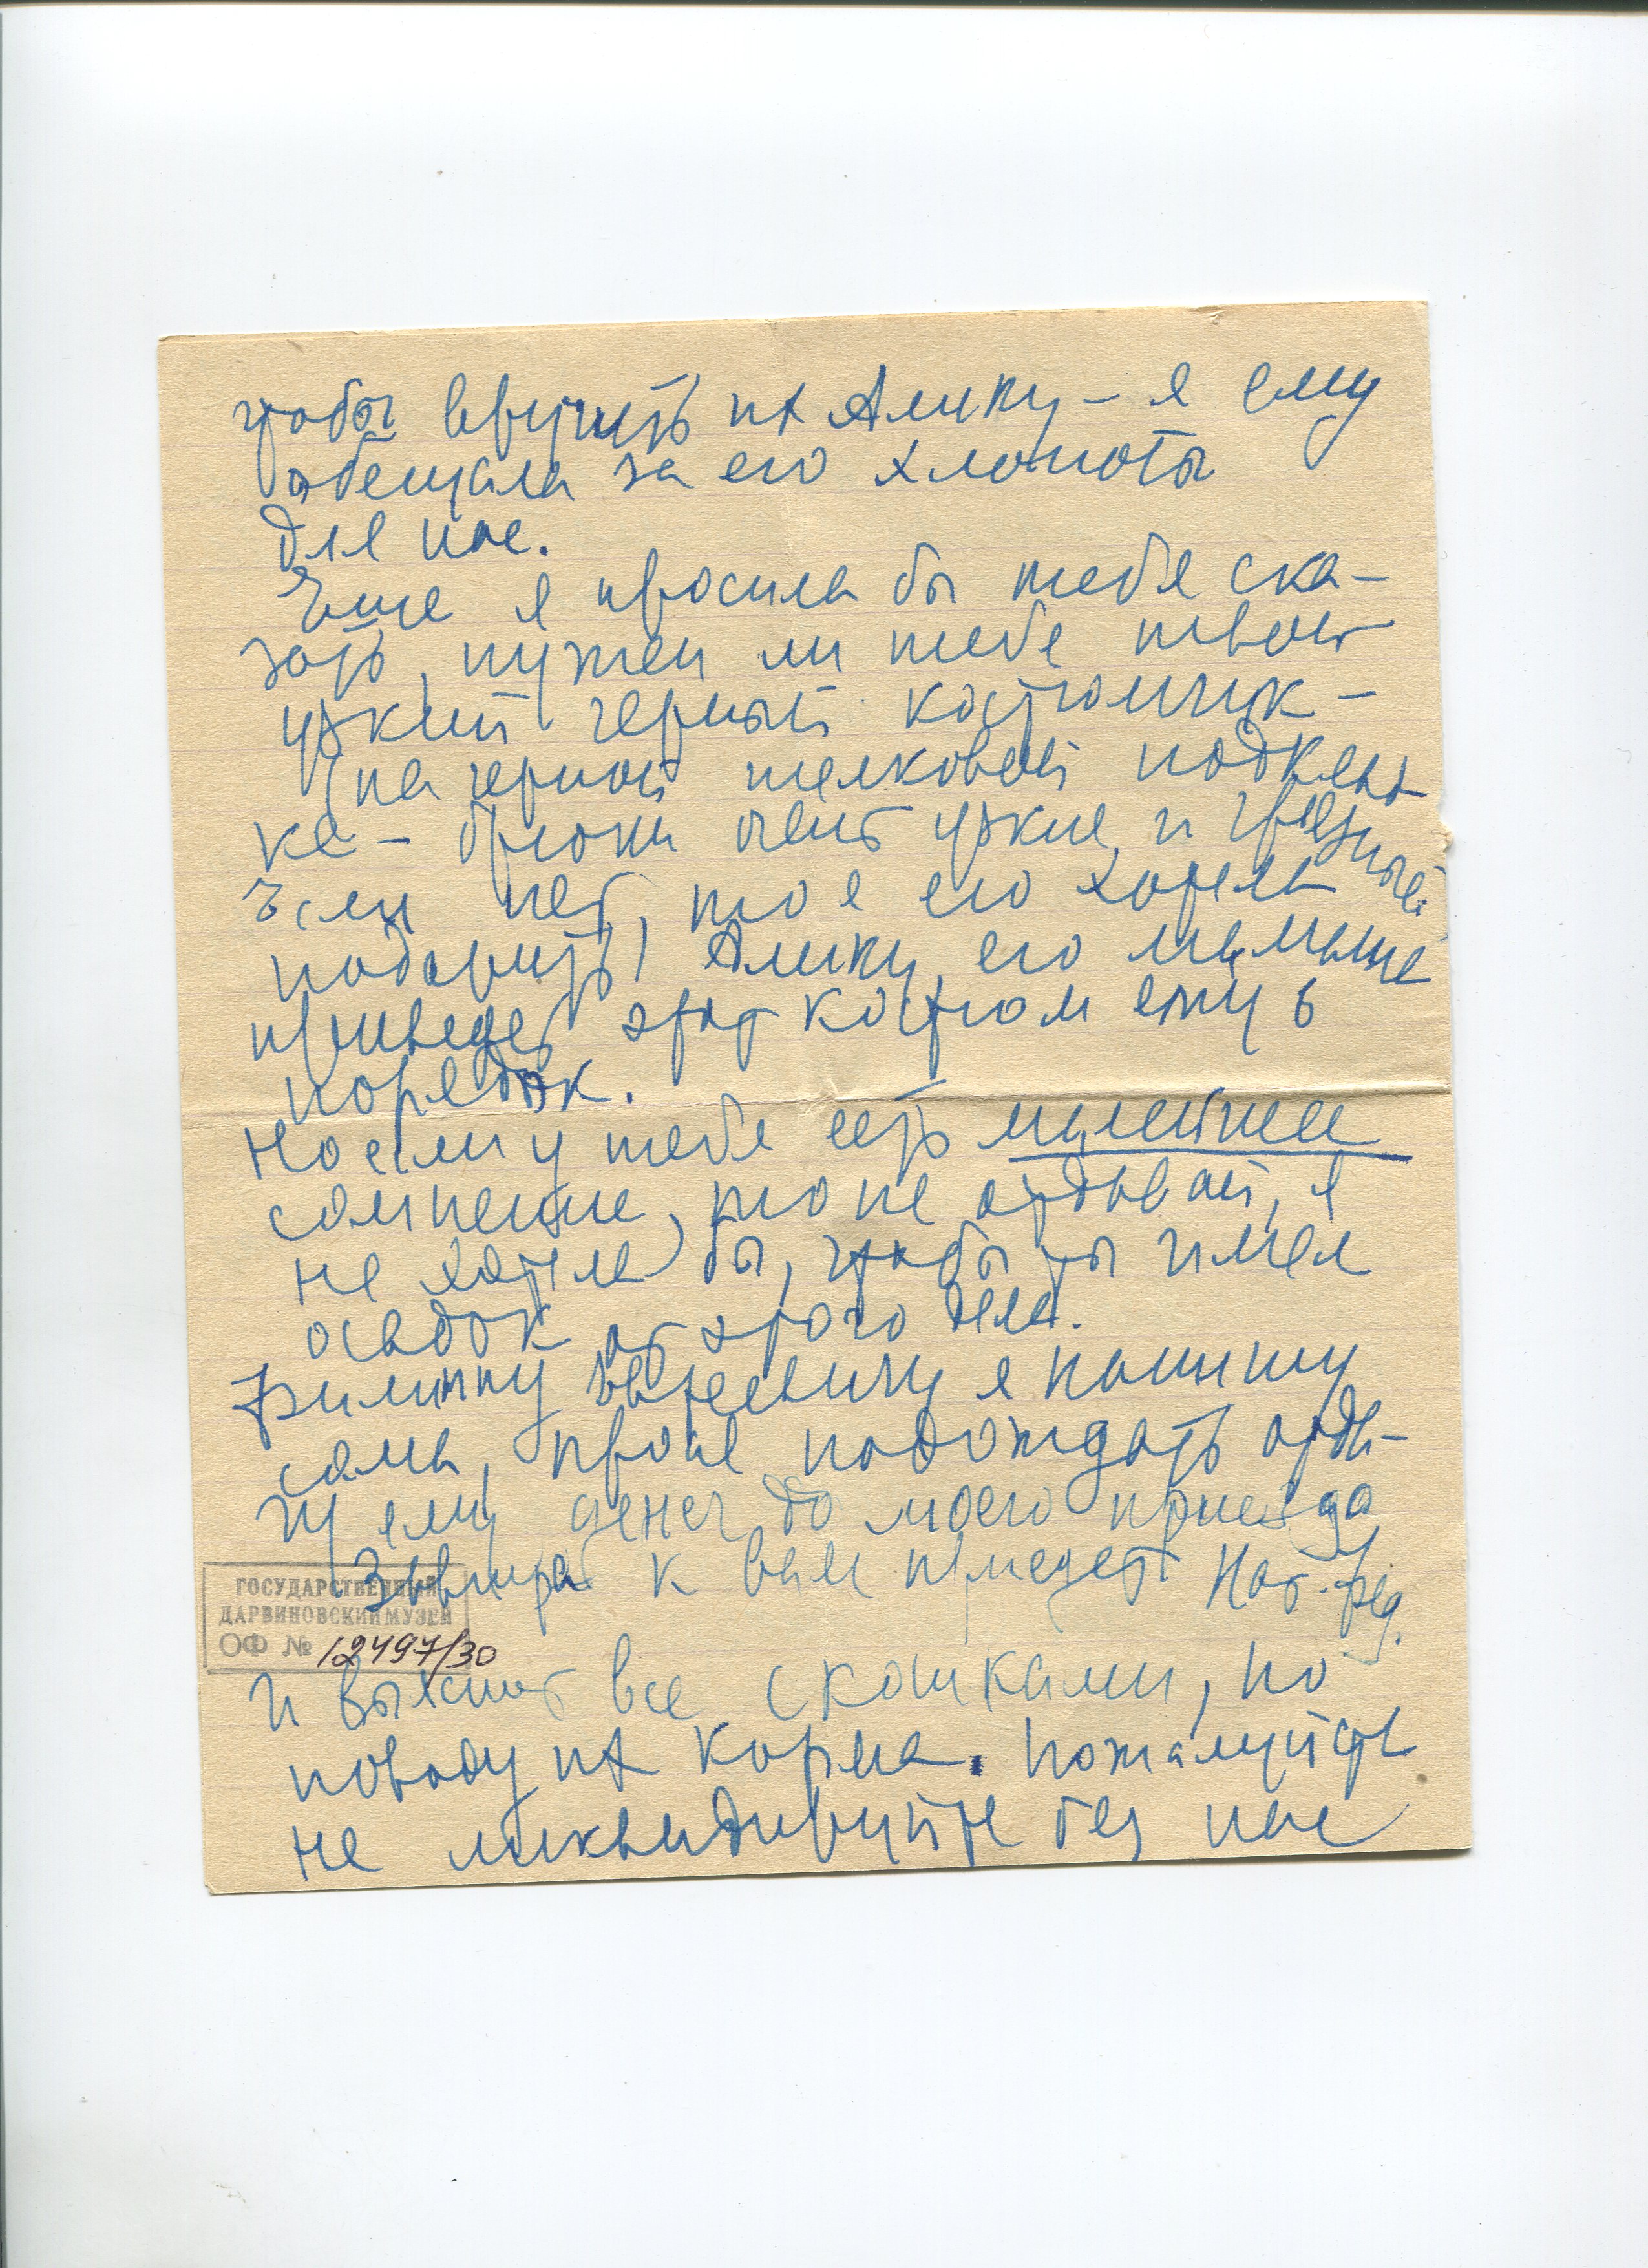 чтобы вручить их Алику – я ему
обещала за его хлопоты
для нас.
Еще я просила бы тебя ска-
зать, нужен ли тебе твой
узкий черный костюмчик –
(на черной шелковой подклад-
ке – брюки очень узкие и грязные.
Если нет, то я его хотела
подарить Алику, его мамаша
приведет этот костюм ему в
порядок.
Но если у тебя есть малейшее
сомнение, то не отдавай, я
не хотела бы, чтобы ты имел
осадок от этого дела.
Филиппу Евтеевичу я напишу
сама, прося подождать отда-
чу ему денег до моего приезда
Завтра к вам приедет Нат. Фед.
ГОСУДАРСТВЕННЫЙ
ДАРВИНОВСКИЙ МУЗЕЙ
ОФ № 12497/30
и выяснит все с кошками, по
поводу их корма. Пожалуйста
не ликвидируйте без нас